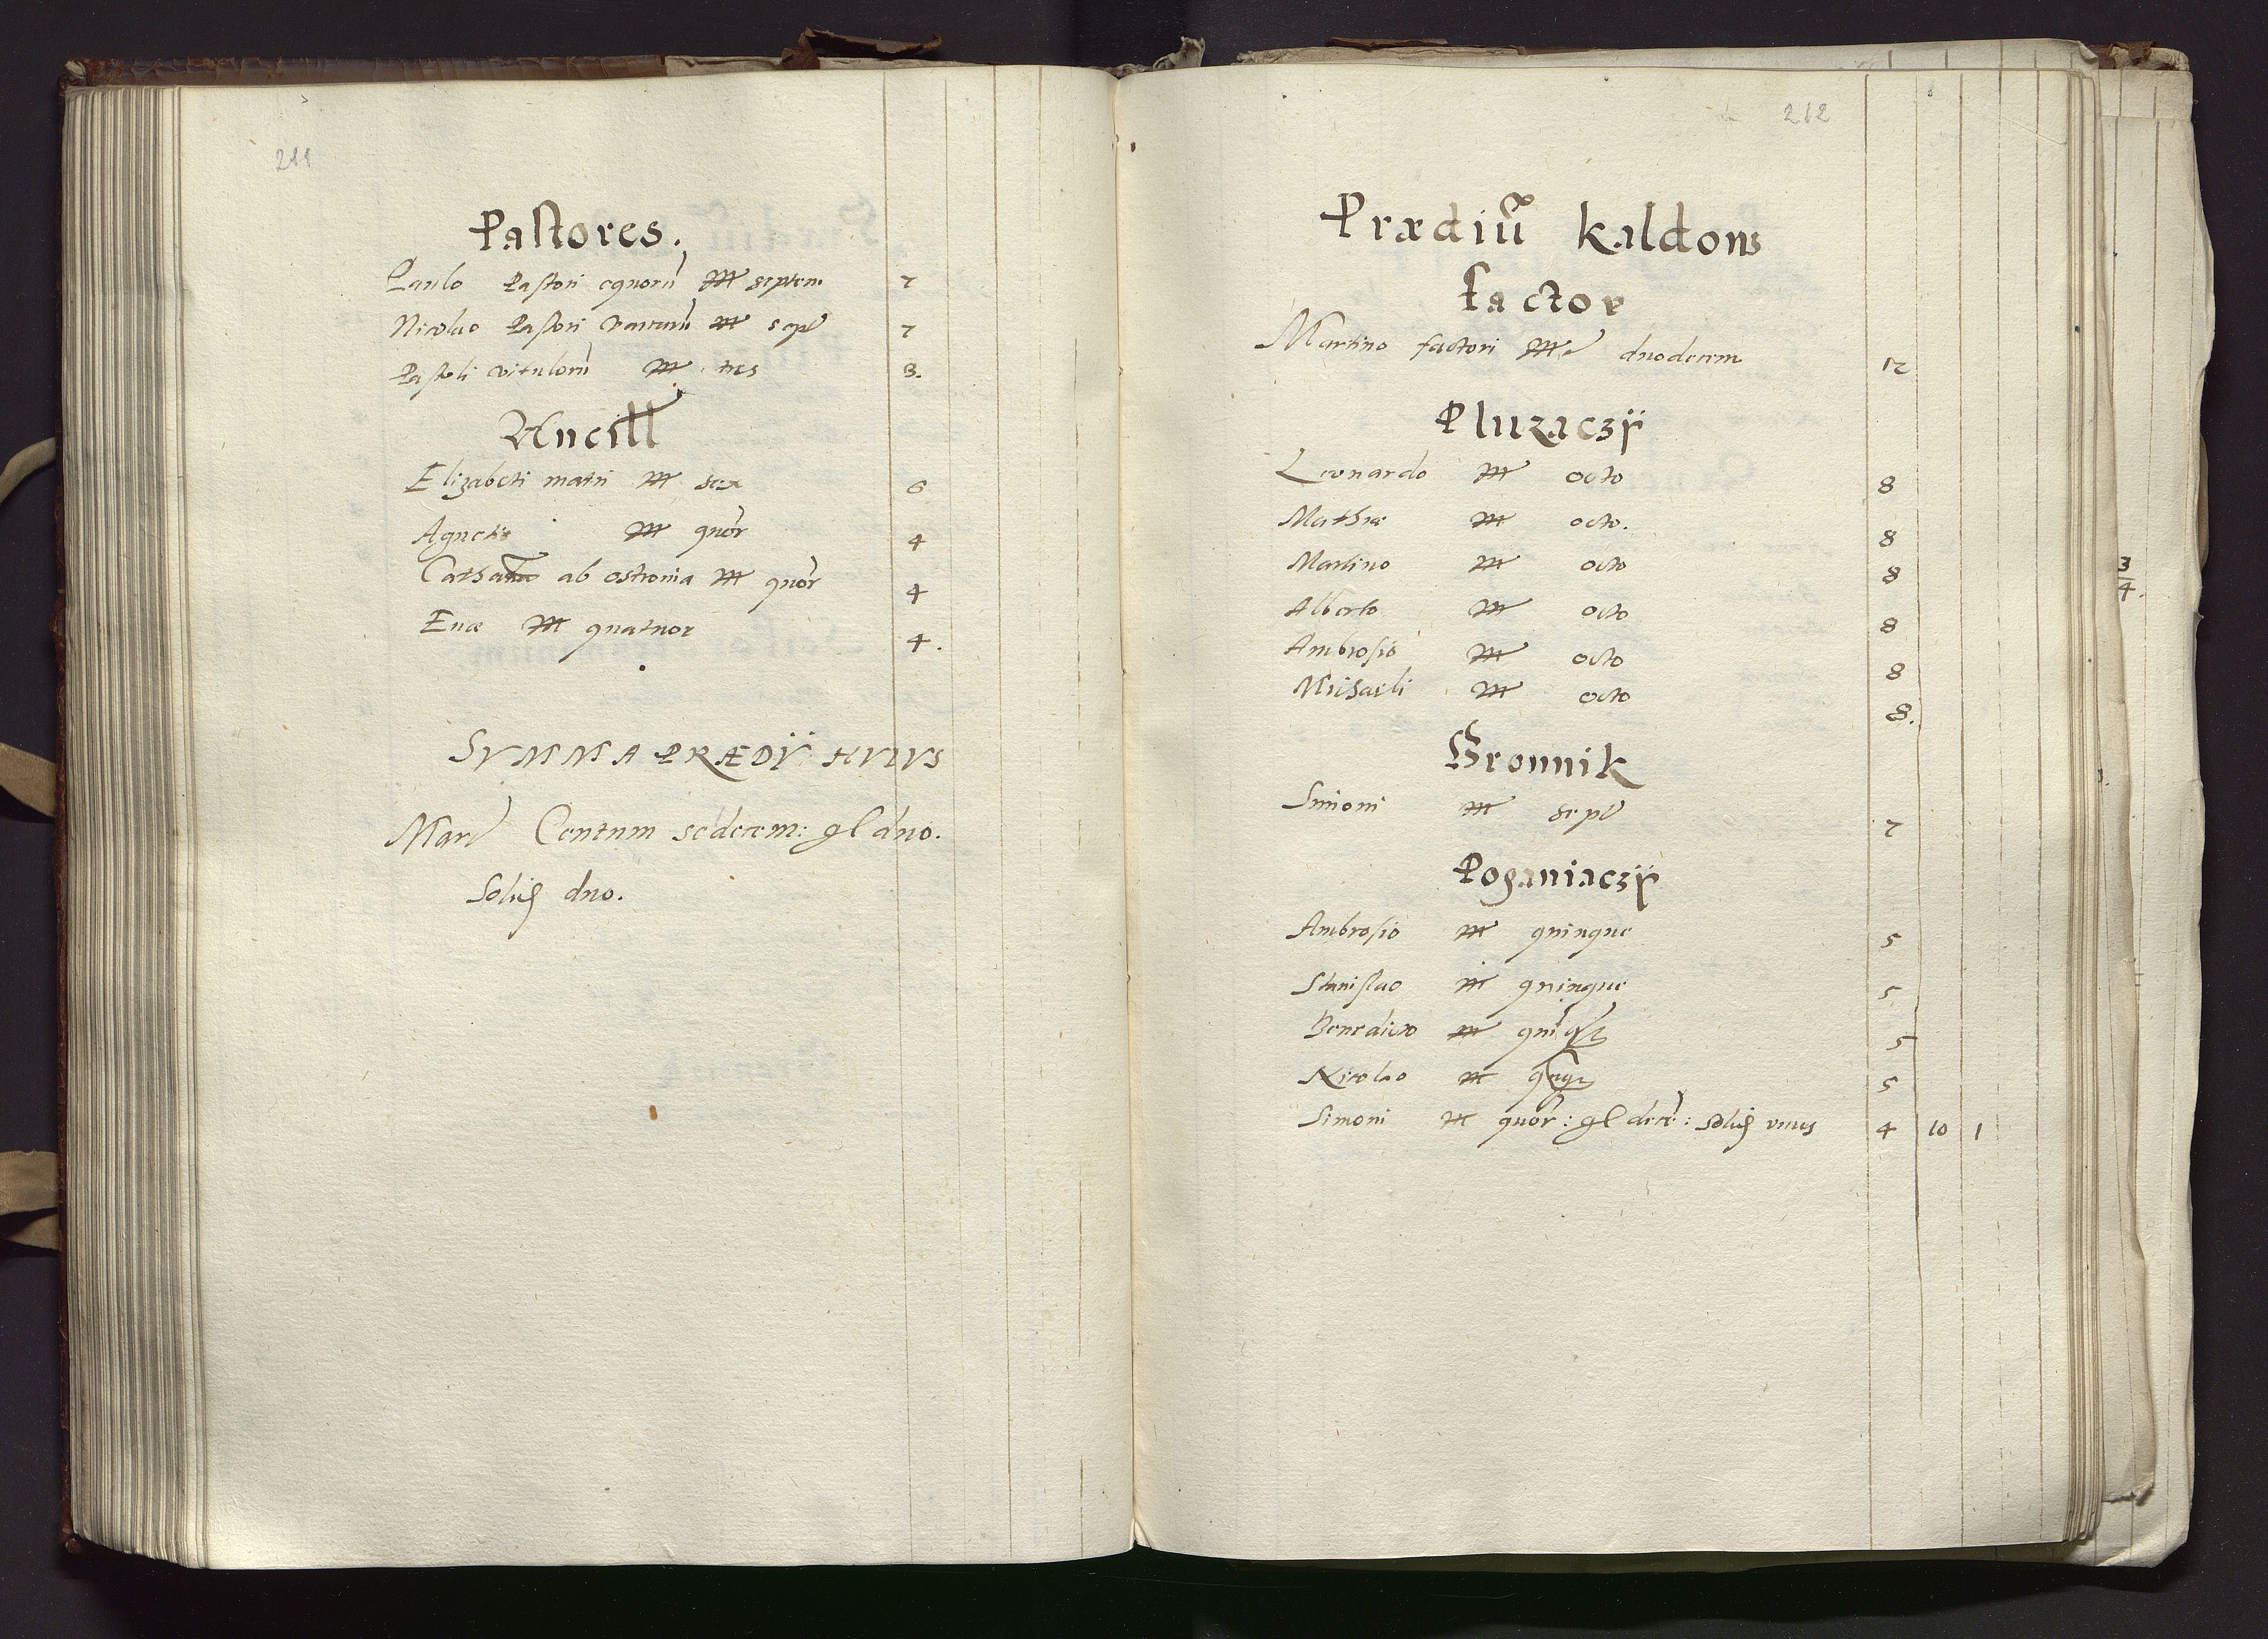 211
Pastores.
Paulo Pastori equorū M septem 7
Nicolao Pastori vaccarū M sept 7
Pastori vitulorū M tres 3.
Ancill
Elizabeti matri M sex 6
Agneti M quōr 4
Catha ab ostronia M quōr 4
Euæ M quatuor 4.
SVMMA PRÆDIJ HVIVS
Marc Centum sedecem: gl duo.
Solid duo.
212
Prædiū Kaldons
Factor
Martino factori M duodecem 12
Pluzaczÿ
Leonardo M octo 8
Mathiæ M octo. 8
Martino M octo 8
Alberto M octo 8
Ambrosio M octo 8
Michaeli M octo 8.
Gronnik
Simoni M sept 7
Poganiaczÿ
Ambrosio M quinque 5
Stanislao M quinque 5
Benedicto M quīq 5
Nicolao M qnq 5
Simoni M quōr: gl decē: Solid unus 4 10 1
3
4.